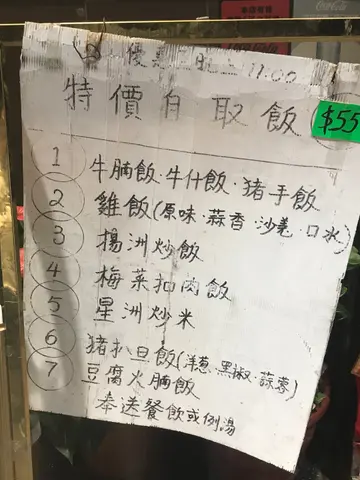 優惠 11:00
特價自取飯 $55
1 牛腩飯·牛什飯·豬手飯
2 雞飯(原味·蒜香·沙羌·口水)
3 揚洲炒飯
4 梅菜扣肉飯
5 星洲炒米
6 豬扒旦飯(洋葱·黑椒·蒜蓉)
7 豆腐火腩飯
奉送餐飲或例湯